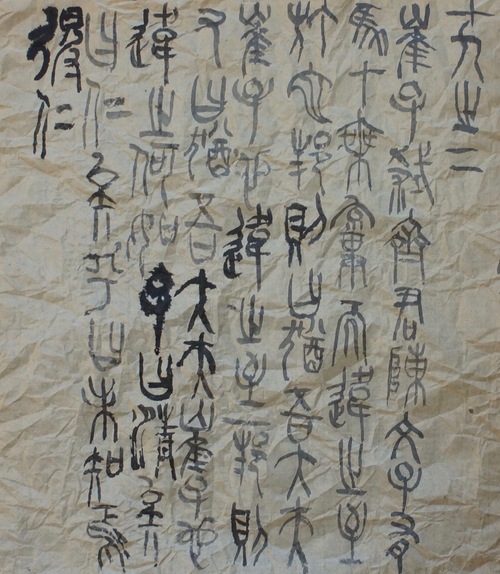 十九之二
崔子弒齊君陳文子有
馬十乘棄而違之至
於他邦則曰猶吾大夫
崔子也違之至一邦則
又曰猶吾大夫崔子也
違之何如子曰清矣
曰仁矣乎曰未知焉
得仁